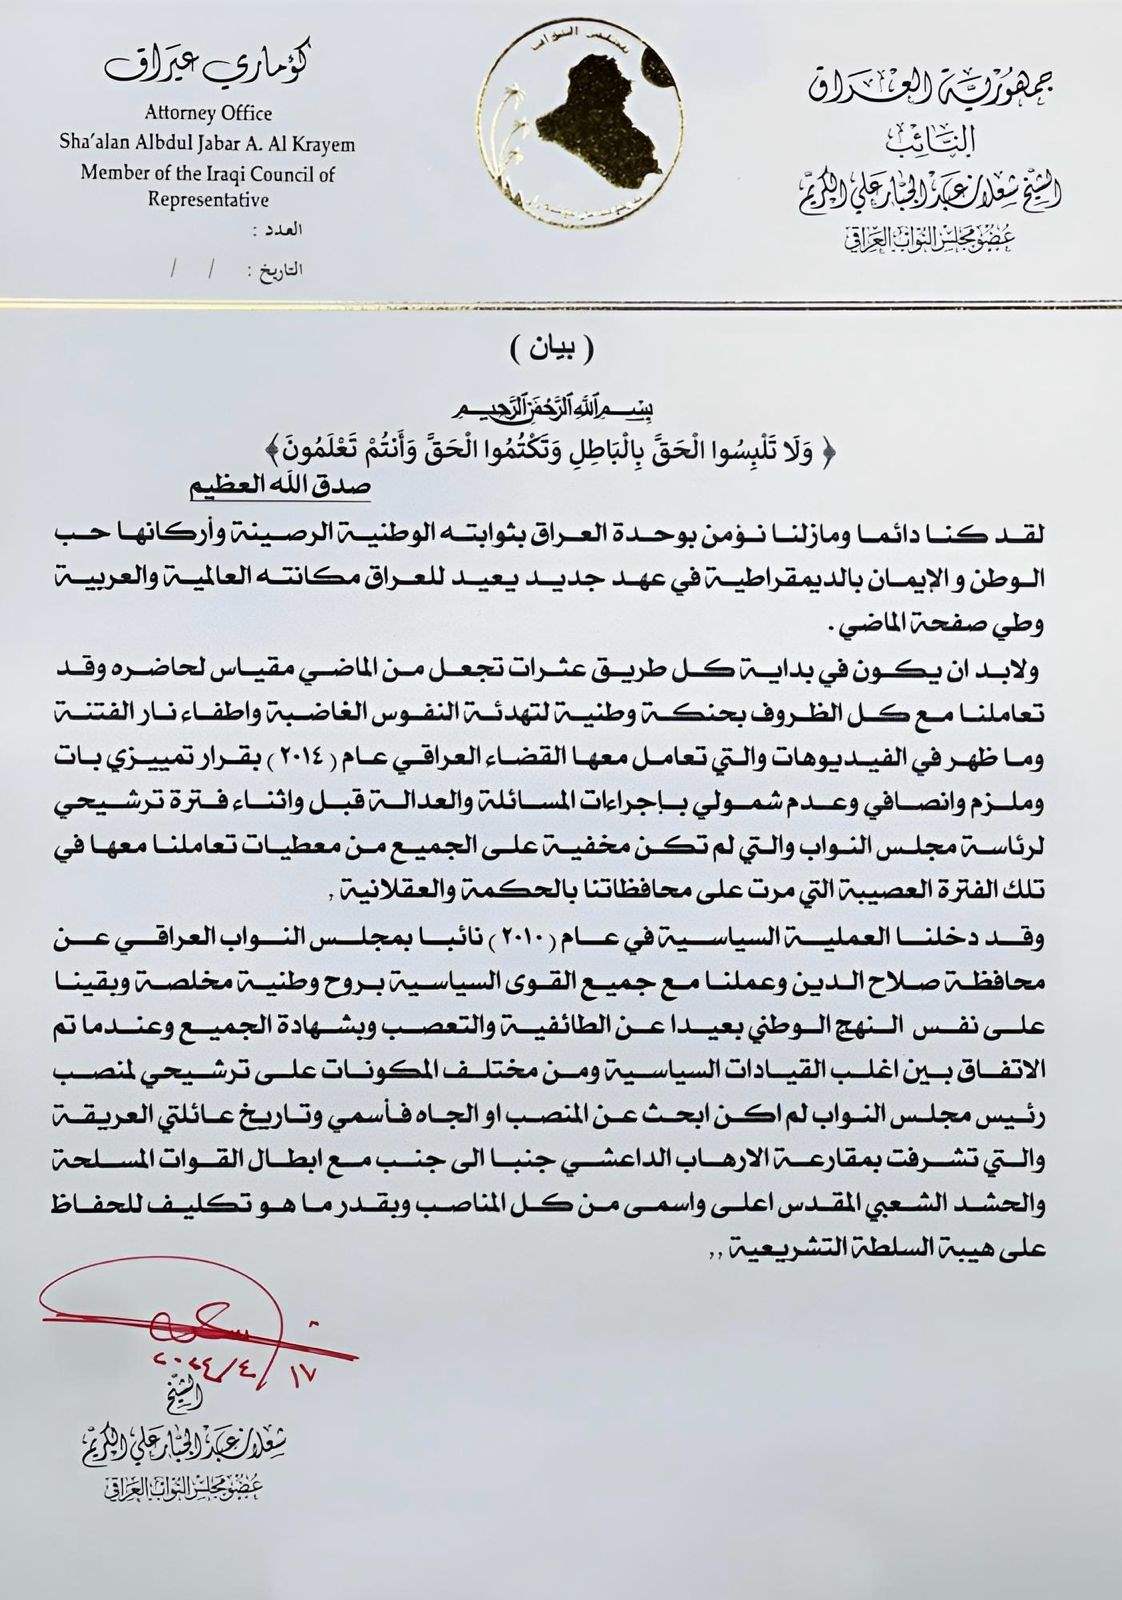 جمهورية العراق
النائب
الشيخ شعلان عبد الجبار علي الكريم
عضو مجلس النواب العراقي
مجلس النواب
كؤماري عيراق
Attorney Office
Sha'alan Albdul Jabar A. Al Krayem
Member of the Iraqi Council of
Representative
العدد :
التاريخ : / /
( بيان )
بسم الله الرحمن الرحيم
﴿ وَلَا تَلْبِسُوا الْحَقَّ بِالْبَاطِلِ وَتَكْتُمُوا الْحَقَّ وَأَنتُمْ تَعْلَمُونَ﴾
صدق الله العظيم
لقد كنا دائما ومازلنا نؤمن بوحدة العراق بثوابته الوطنية الرصينة وأركانها حب
الوطن و الإيمان بالديمقراطية في عهد جديد يعيد للعراق مكانته العالمية والعربية
وطي صفحة الماضي .
ولابد ان يكون في بداية كل طريق عثرات تجعل من الماضي مقياس لحاضره وقد
تعاملنا مع كل الظروف بحنكة وطنية لتهدئة النفوس الغاضبة واطفاء نار الفتنة
وما ظهر في الفيديوهات والتي تعامل معها القضاء العراقي عام (٢٠١٤) بقرار تمييزي بات
وملزم وانصافي وعدم شمولي بإجراءات المسائلة والعدالة قبل واثناء فترة ترشيحي
لرئاسة مجلس النواب والتي لم تكن مخفية على الجميع من معطيات تعاملنا معها في
تلك الفترة العصيبة التي مرت على محافظاتنا بالحكمة والعقلانية ,
وقد دخلنا العملية السياسية في عام (٢٠١٠) نائبا بمجلس النواب العراقي عن
محافظة صلاح الدين وعملنا مع جميع القوى السياسية بروح وطنية مخلصة وبقينا
على نفس النهج الوطني بعيدا عن الطائفية والتعصب وبشهادة الجميع وعندما تم
الاتفاق بين اغلب القيادات السياسية ومن مختلف المكونات على ترشيحي لمنصب
رئيس مجلس النواب لم اكن ابحث عن المنصب او الجاه فأسمي وتاريخ عائلتي العريقة
والتي تشرفت بمقارعة الارهاب الداعشي جنبا الى جنب مع ابطال القوات المسلحة
والحشد الشعبي المقدس اعلى واسمى من كل المناصب وبقدر ما هو تكليف للحفاظ
على هيبة السلطة التشريعية ,,
١٧ /٤/ ٢٠٢٤
الشيخ
شعلان عبد الجبار علي الكريم
عضو مجلس النواب العراقي